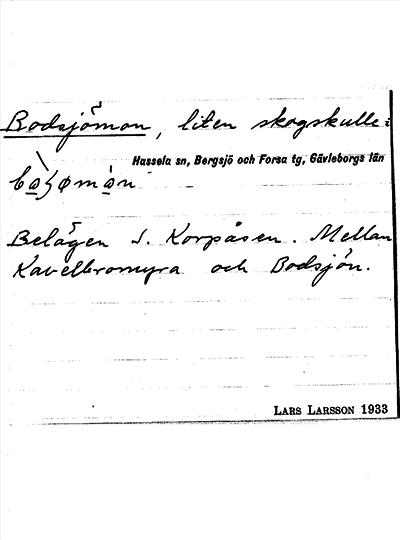 Bodsjömon, liten skogskulle:
Hassela sn, Bergsjö och Forsa tg, Gävleborgs län
Belägen S. Korpåsen. Mellan
Kavelbromyra och Bodsjön.
LARS LARSSON 1933